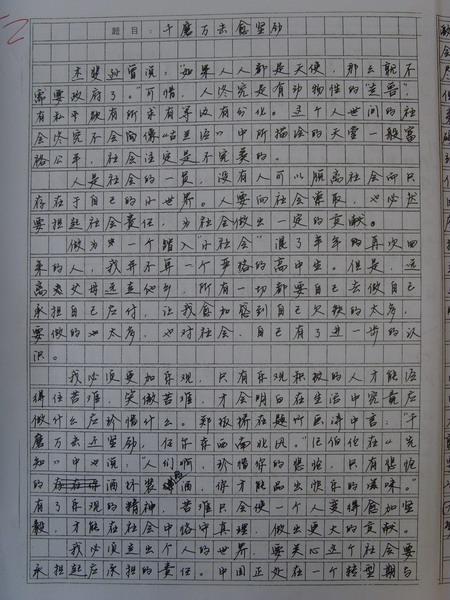 题目：千磨万击愈坚劲
杰斐逊曾说，"如果人人都是天使，那么就不
需要政府了。"可惜，人终究是有动物性的
有私率欲有所求有等次有分化。这个人世间的社
会终究不会同像"古兰经"中所描绘的天堂一般富
裕公平，社会注定是不完美的。
人是社会的一员，没有人可以脱离社会而只
存在于自己的小世界。人要向社会索取，也必然
要担起社会责任，为社会做出一定的贡献。
做为一个踏入"小社会"混了半年的再次回
来的人，我并不算一个严格的高中生。但是，远
离父母远走他乡，所有一切都要自己去做自己
承担自己应付，让我愈加感到自己欠缺的太多，
要做的也太多，也对社会、自己有了进一步的认
识。
我必须更加乐观，只有乐观积极的人才能经
得住苦难，笑傲苦难，才会明白在生活中究竟应
做什么应珍惜什么。郑板桥在题竹画诗中言："千
磨万击还坚劲，任尔东西南北风。"纪伯伦在"先
知"中也说，"人们啊，珍惜你的悠怆，只有悠怆
的酒坏装酒，你才能品出快乐的滋味。"
有了乐观的精神，苦难只会使一个人变得愈加坚
毅，才能在社会中恪守真理，做出更大的贡献。
我必须走出个人的世界，要关心这个社会要
承担起应承担的责任。中国正处在一个转型期与